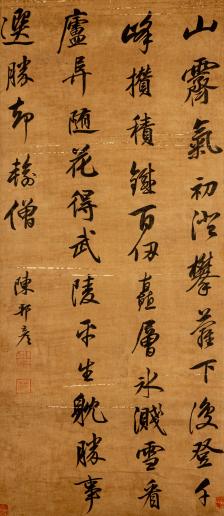 山霽氣初澄攀蘿下復登千
峰攢積鐵百仞矗層冰濺雪看
廬阜随花得武陵平生躭勝事
選勝却輸僧
陳邦彦